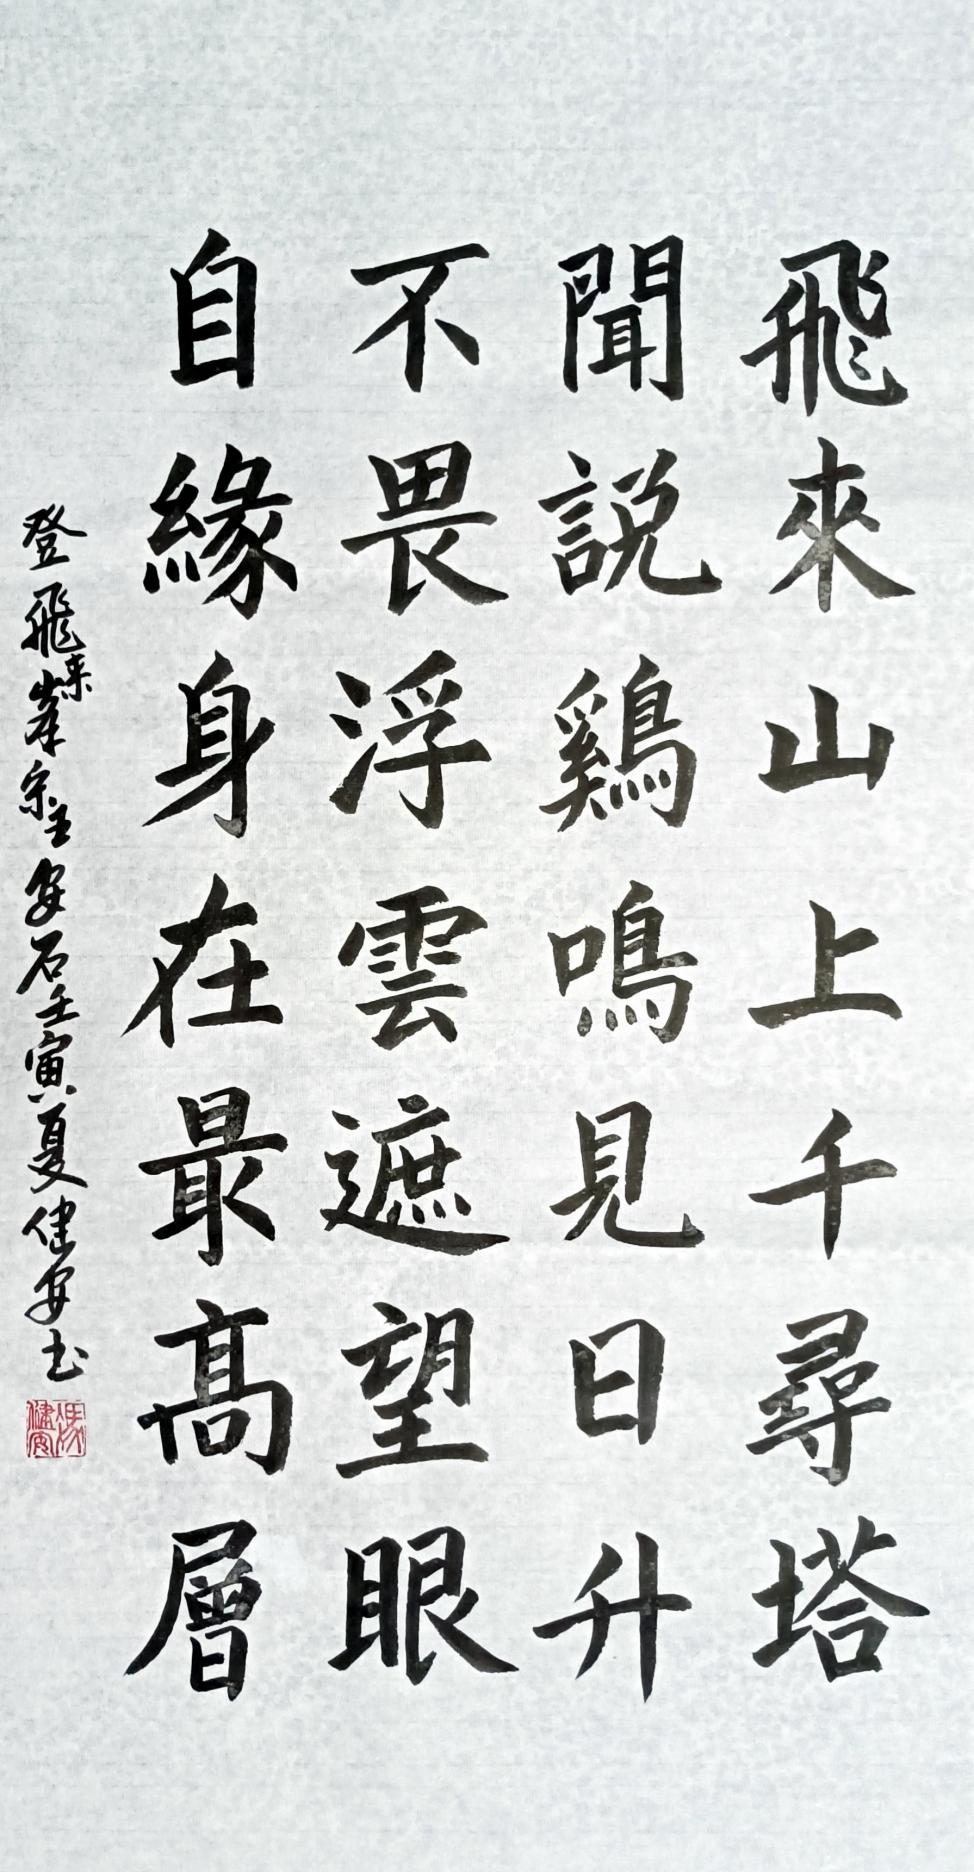 飛來山上千尋塔
聞説鷄鳴見日升
不畏浮雲遮望眼
自緣身在最高層
登飛来峯宗王安石壬寅夏健安书
馮健安